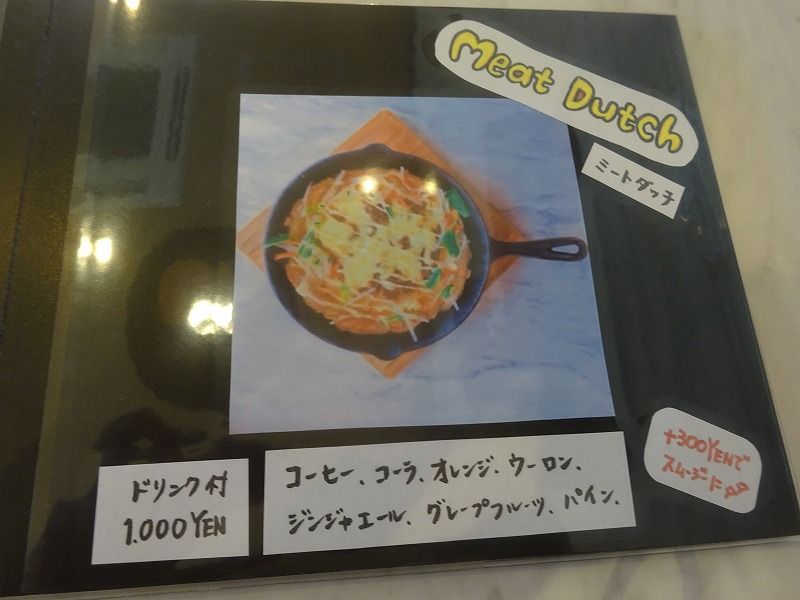 Meat Dutch
ミートダッチ
ドリンク付
1.000YEN
コーヒー、コーラ、オレンジ、ウーロン、
ジンジャエール、グレープフルーツ、パイン、
+300YENで
スムージーに